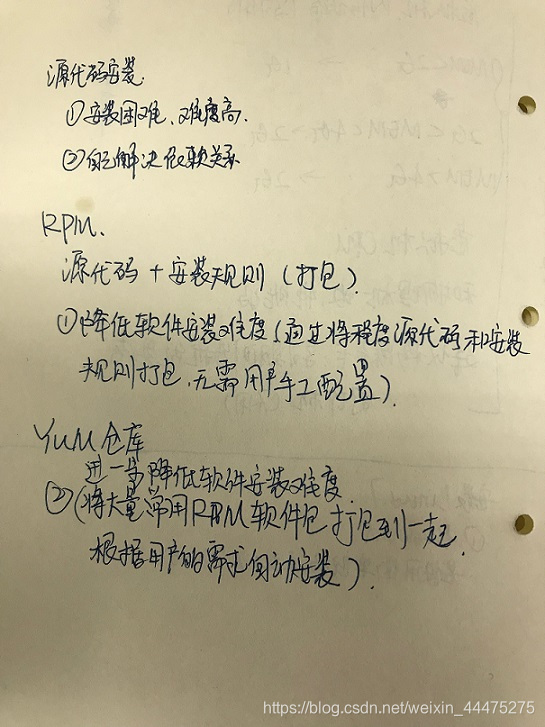 源代码安装
①安装困难、难度高.
②自己解决依赖关系
RPM.
源代码 + 安装规则（打包）
①降低软件安装难度（通过将程度源代码和安装
规则打包，无需用户手工配置）.
YUM仓库
进一步降低软件安装难度.
②（将大量常用RPM软件包打包到一起.
根据用户的需求自动安装）.
https://blog.csdn.net/weixin_44475275